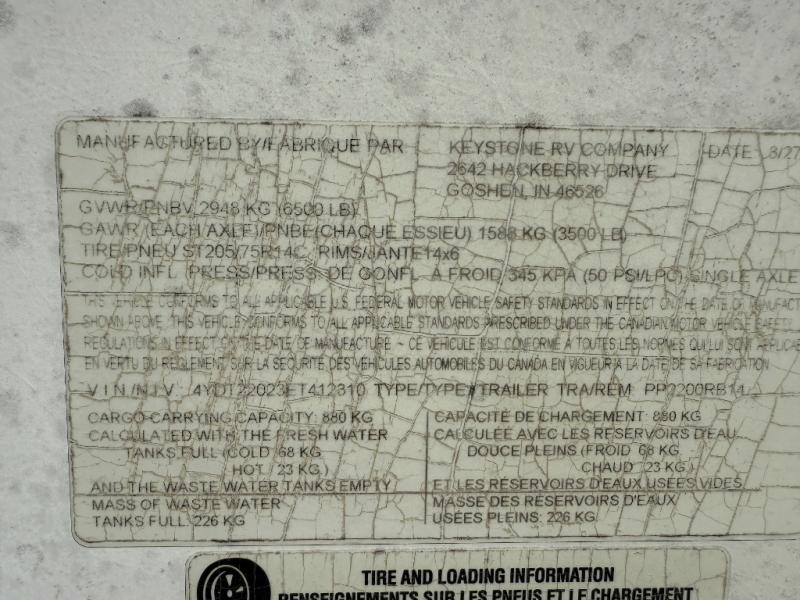 MANUFACTURED BY/FABRIQUE PAR KEYSTONE RV COMPANY DATE 3/27
2642 HACKBERRY DRIVE
GOSHEN, IN 46526
GVWR/PNBV 2948 KG (6500 LB)
GAWR (EACH AXLE)/PNBE(CHAQUE ESSIEU) 1588 KG (3500 LB)
TIRE/PNEU ST205/75R14C RIMS/JANTE14x6
COLD INFL. PRESS/PRESS. DE GONFL. A FROID 345 KPA (50 PSI/LPC) SINGLE AXLE
THIS VEHICLE CONFORMS TO ALL APPLICABLE U.S. FEDERAL MOTOR VEHICLE SAFETY STANDARDS IN EFFECT ON THE DATE OF MANUFACT
SHOWN ABOVE. THIS VEHICLE CONFORMS TO ALL APPLICABLE STANDARDS PRESCRIBED UNDER THE CANADIAN MOTOR VEHICLE SAFETY
REGULATIONS IN EFFECT ON THE DATE OF MANUFACTURE ~ CE VÉHICULE EST CONFORME À TOUTES LES NORMES QUI LUI SONT APPLICA
EN VERTU DU RÈGLEMENT SUR LA SECURITÉ DES VÉHICULES AUTOMOBILES DU CANADA EN VIGUEUR À LA DATE DE SA FABRICATION
V I N / N I V 4YDT22023ET412310 TYPE/TYPE TRAILER TRA/REM PP2200RB14
CARGO CARRYING CAPACITY: 880 KG
CALCULATED WITH THE FRESH WATER
TANKS FULL (COLD: 68 KG
HOT: 23 KG.)
AND THE WASTE WATER TANKS EMPTY
MASS OF WASTE WATER
TANKS FULL: 226 KG
CAPACITÉ DE CHARGEMENT: 880 KG
CALCULÉE AVEC LES RÉSERVOIRS D'EAU
DOUCE PLEINS (FROID: 68 KG
CHAUD: 23 KG.)
ET LES RÉSERVOIRS D'EAUX USÉES VIDES
MASSE DES RÉSERVOIRS D'EAUX
USÉES PLEINS: 226 KG
TIRE AND LOADING INFORMATION
RENSEIGNEMENTS SUR LES PNEUS ET LE CHARGEMENT